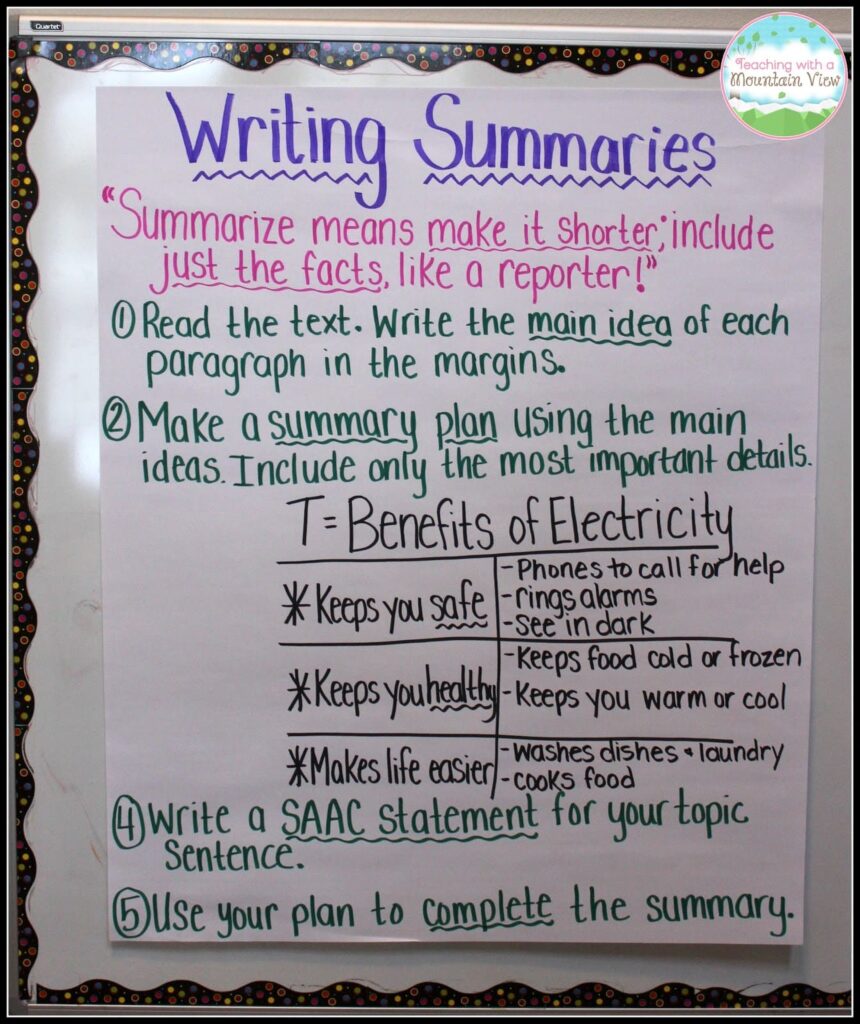 Quartet
Teaching with a
Mountain View
Writing Summaries
"Summarize means make it shorter; include
just the facts, like a reporter!"
① Read the text. Write the main idea of each
paragraph in the margins.
② Make a summary plan using the main
ideas. Include only the most important details.
T = Benefits of Electricity
* Keeps you safe
- Phones to call for help
- rings alarms
- See in dark
* Keeps you healthy
- Keeps food cold or frozen
- Keeps you warm or cool
* Makes life easier
- Washes dishes + laundry
- cooks food
④ Write a SAAC Statement for your topic
Sentence.
⑤ Use your plan to complete the summary.